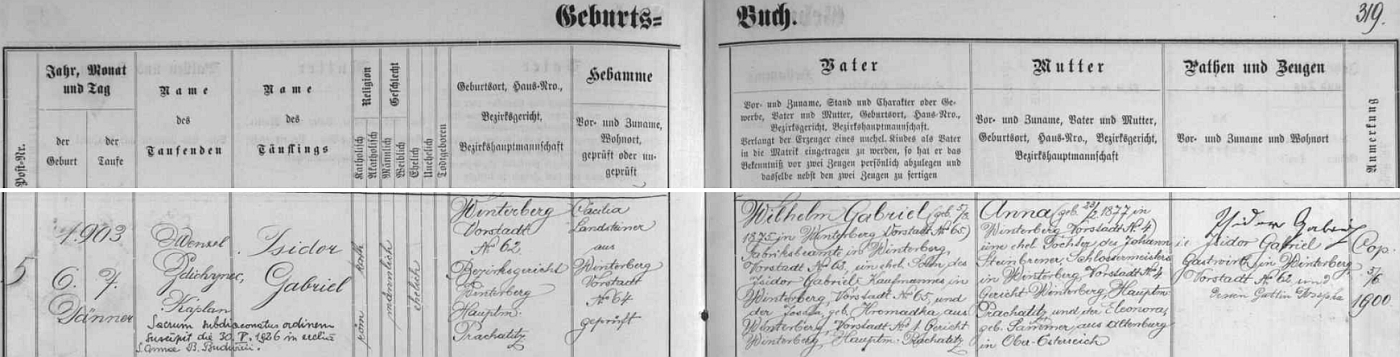 Geburts=
Buch.
319.
Post-Nr.
Jahr, Monat
und Tag
der
Geburt
der
Taufe
Name
des
Taufenden
Name
des
Täuflings
Religion
Katholisch
Akatholisch
Geschlecht
Männlich
Weiblich
Ehelich
Unehelich
Todtgeboren
Geburtsort, Haus-Nro.,
Bezirksgericht,
Bezirkshauptmannschaft
Hebamme
Vor- und Zuname,
Wohnort,
geprüft oder un-
geprüft
Vater
Vor- und Zuname, Stand und Charakter oder Ge-
werbe, Vater und Mutter, Geburtsort, Haus-Nro.,
Bezirksgericht, Bezirkshauptmannschaft.
Verlangt der Erzeuger eines unehel. Kindes als Vater
in die Matrik eingetragen zu werden, so hat er das
Bekenntniß vor zwei Zeugen persönlich abzulegen und
dasselbe nebst den zwei Zeugen zu fertigen
Mutter
Vor- und Zuname, Vater und Mutter,
Geburtsort, Haus-Nro., Bezirksgericht,
Bezirkshauptmannschaft
Pathen und Zeugen
Vor- und Zuname und Wohnort
Anmerkung
5
1903
6. 7.
Jänner
Wenzel
Kaplan
Sacrum subdiaconatus ordinem
suscepit die 30. 1926 in
B.
Isidor
Gabriel
röm. kath.
männlich
ehelich
Winterberg
Vorstadt
№ 62
Bezirksgericht
Winterberg
Hauptm.
Prachatitz
Cäcilia
Landsteiner
aus
Winterberg
Vorstadt
№ 64
geprüft
Wilhelm Gabriel (geb.
1875 in Winterberg Vorstadt № 65)
Fabriksbeamte in Winterberg,
Vorstadt № 63, ein ehel. Sohn des
Isidor Gabriel Kaufmannes in
Winterberg, Vorstadt № 65, und
der geb. Hromadka aus
Winterberg, Vorstadt № 1 Gericht
Winterberg, Hauptm. Prachatitz
Anna (geb. 1877 in
Winterberg Vorstadt № 4)
eine ehel. Tochter des Johann
Steinbrener, Schlossermeisters
in Winterberg, Vorstadt № 4
Gericht Winterberg, Hauptm.
Prachatitz und der Eleonora
geb. Sammer aus Altenburg
in Ober-Österreich
Isidor Gabriel
Isidor Gabriel
Gastwirth in Winterberg
Vorstadt № 62 und
dessen Gattin Josepha
Cop.
5/6
1900